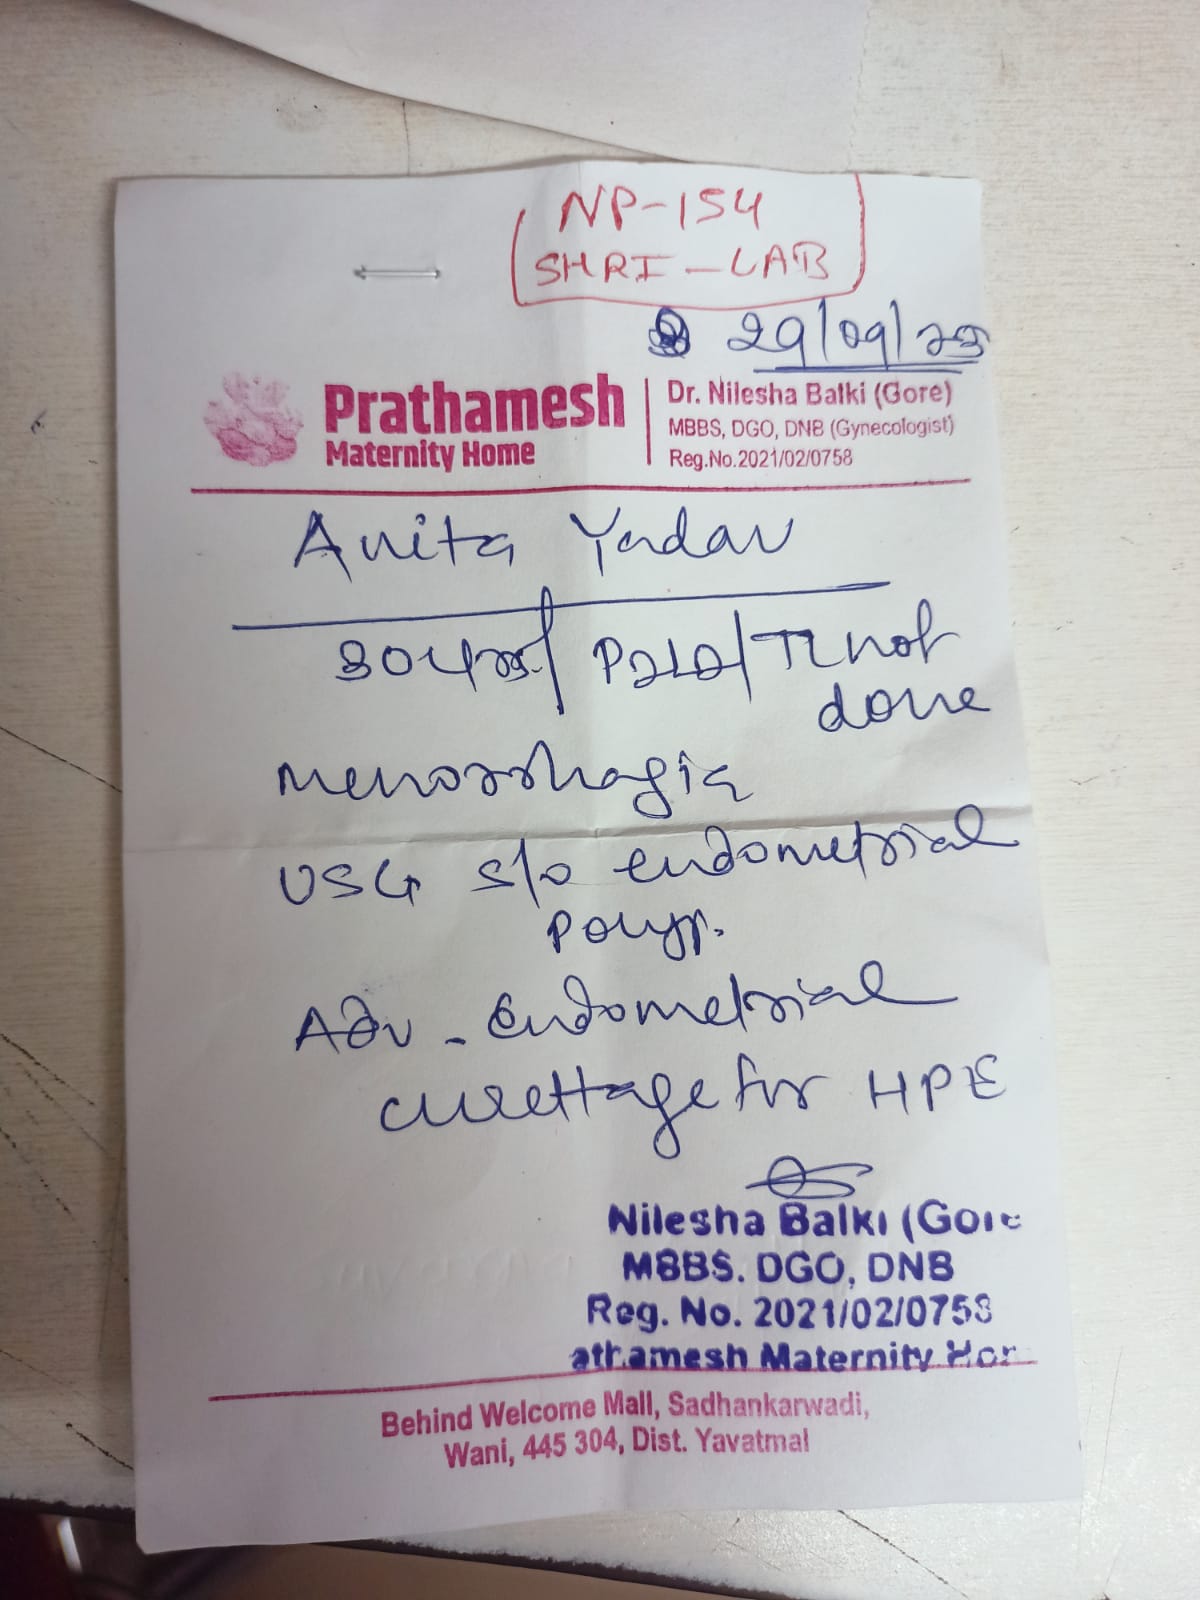 NP-154
SHRI-LAB
29/09/25
Prathamesh
Maternity Home
Dr. Nilesha Balki (Gore)
MBBS, DGO, DNB (Gynecologist)
Reg.No.2021/02/0758
Anita Yadav
30yrs/ P2L2/TL not
done
Menorrhagia
USG s/o endometrial
polyp.
Adv - Endometrial
curettage for HPE
Nilesha Balki (Gore
MBBS. DGO, DNB
Reg. No. 2021/02/0758
athamesh Maternity Hom
Behind Welcome Mall, Sadhankarwadi,
Wani, 445 304, Dist. Yavatmal